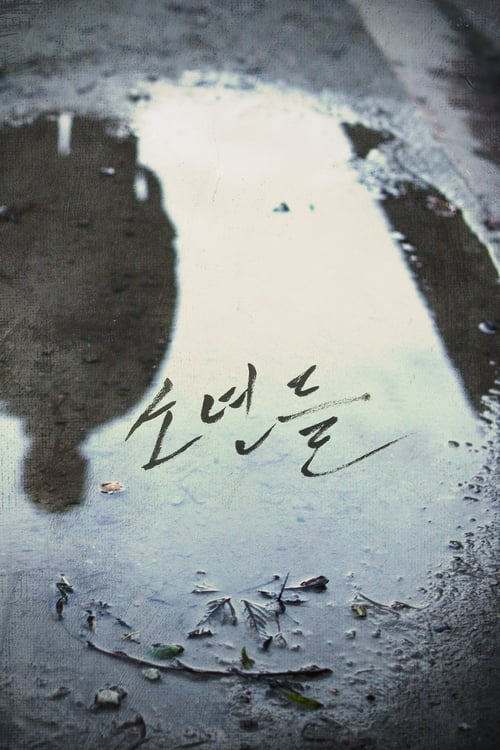 소년들